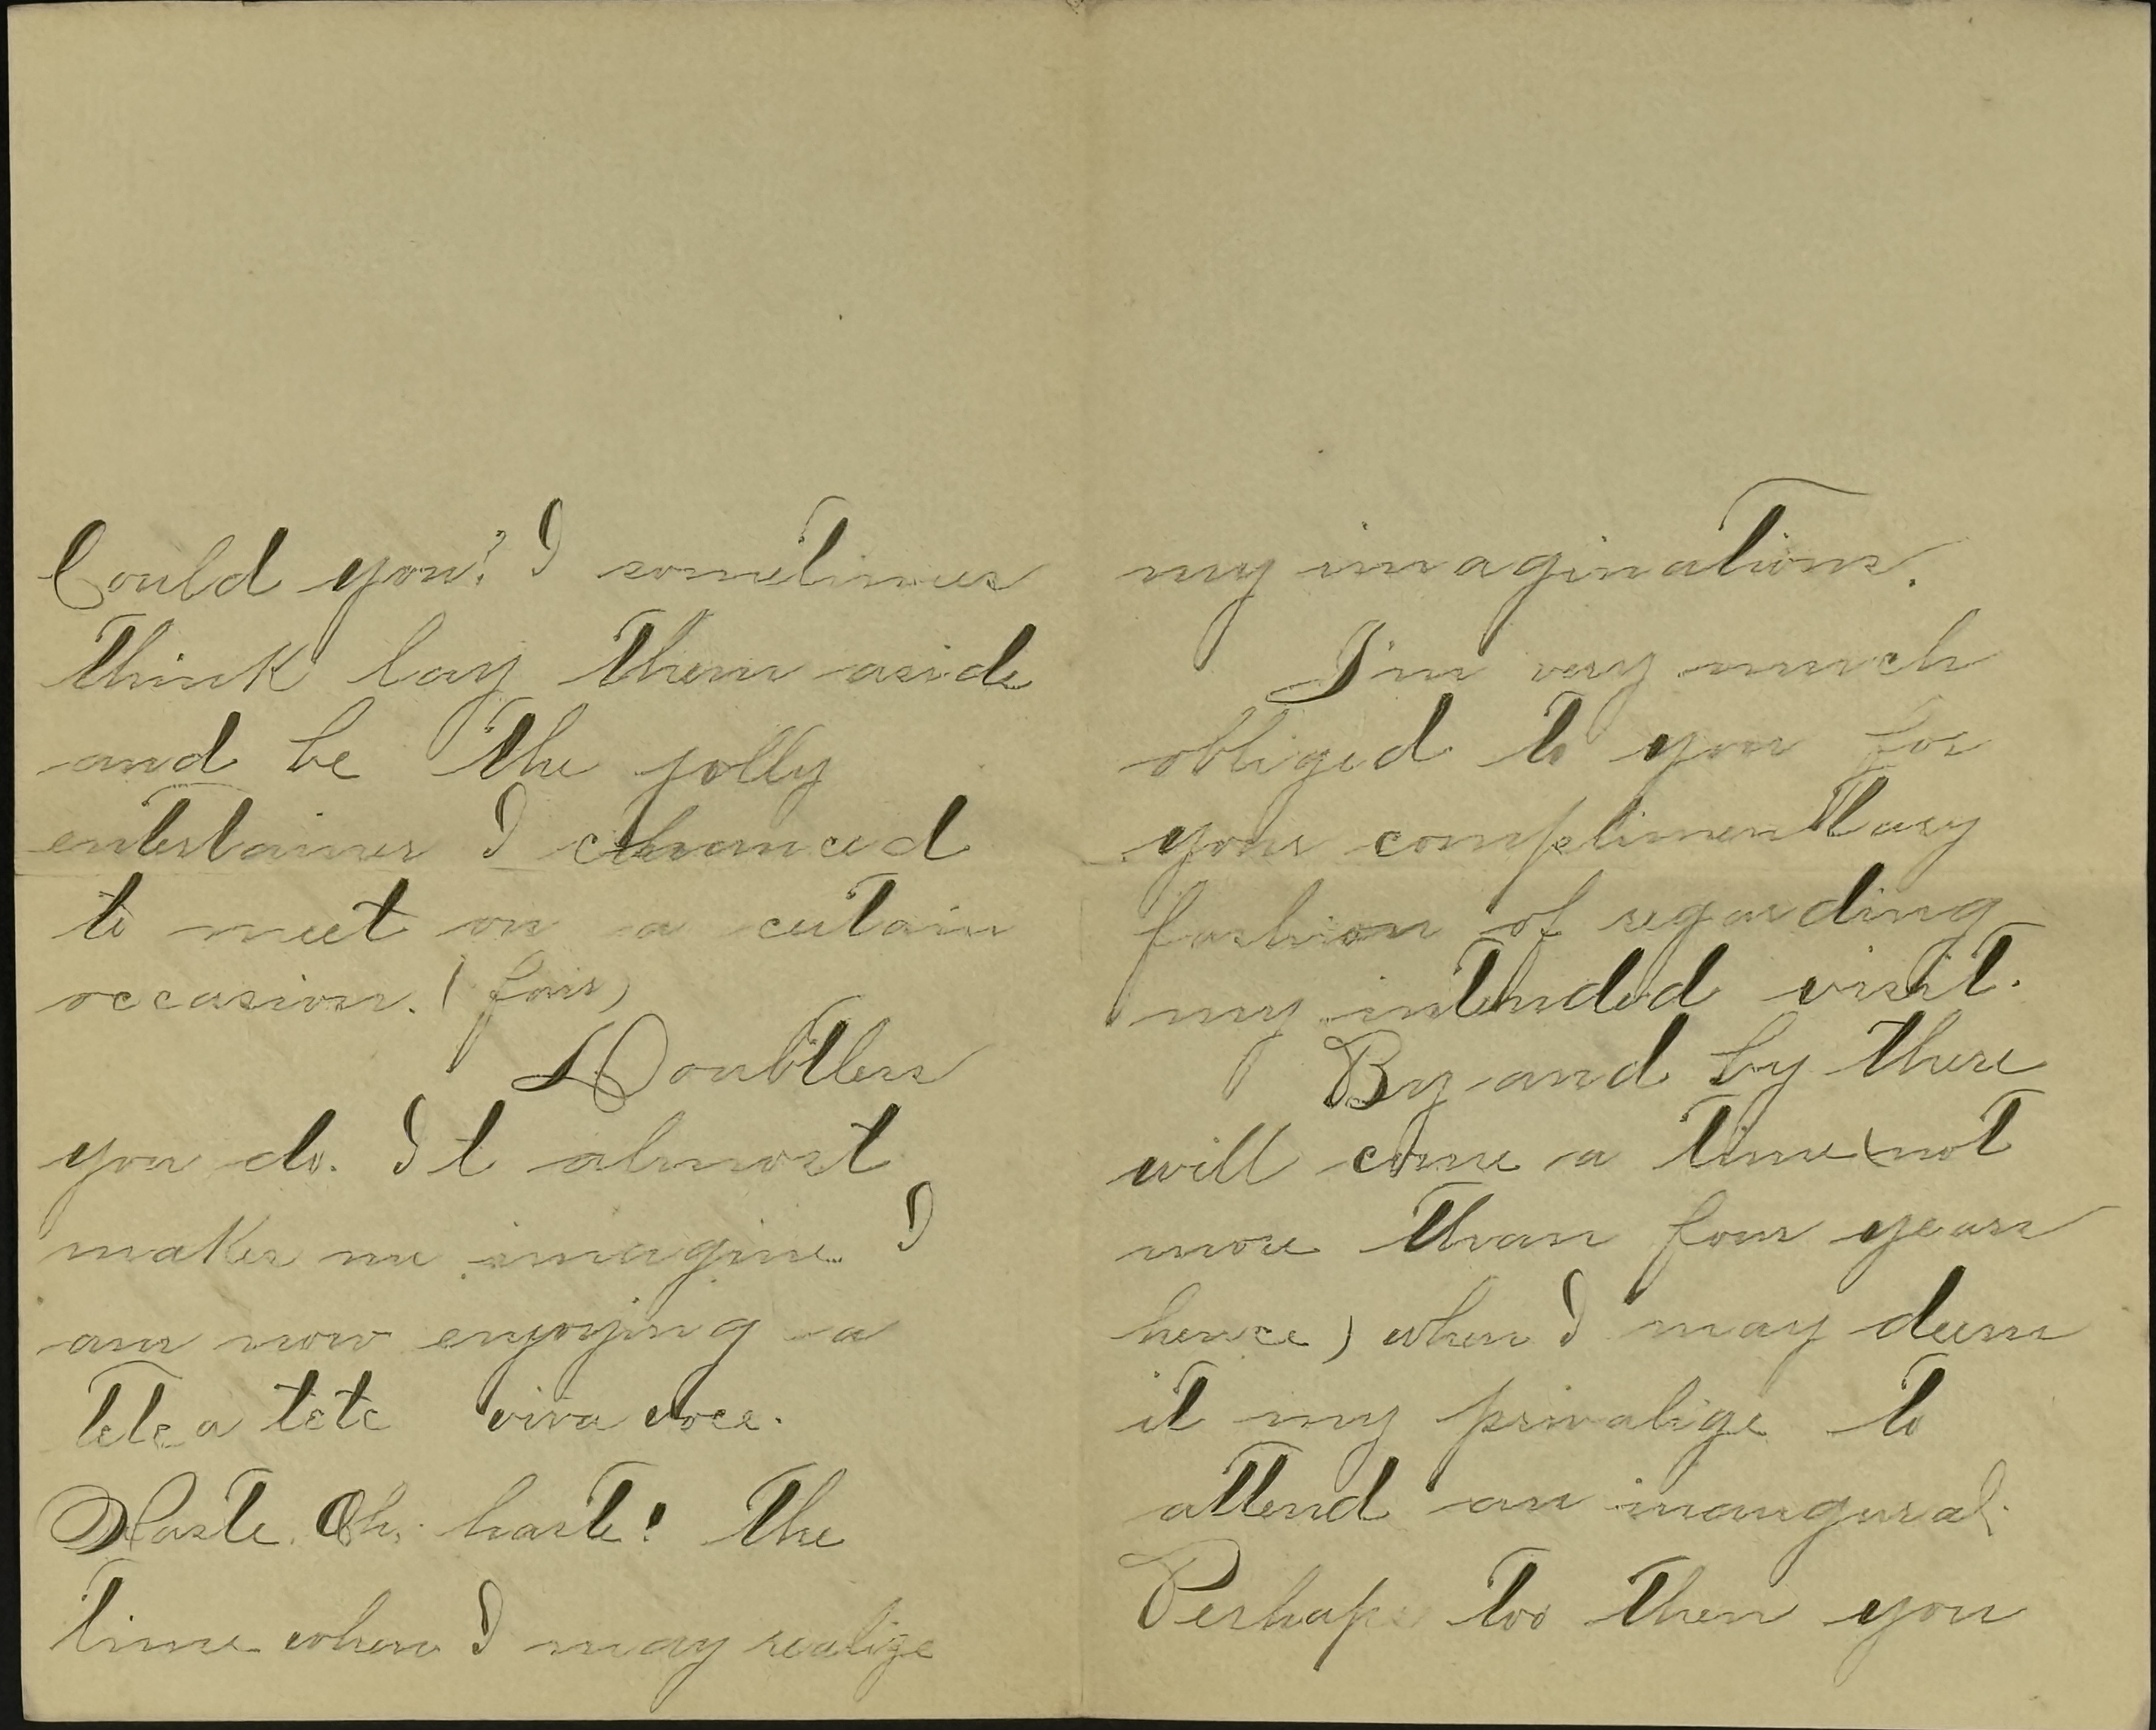 Could you? I sometimes
think lay them aside
and be the jolly
entertainer I chanced
to meet on a certain
occasion. (fois)
Doubtless
you do. It almost
makes me imagine I
am now enjoying a
tete a tete viva voce.
Haste. Oh, haste! the
time when I may realize
my imaginations.
I'm very much
obliged to you for
your complimentary
fashion of regarding
my intended visit.
By and by there
will come a time (not
more than four years
hence) when I may deem
it my privalige to
attend an inaugural.
Perhaps too then you